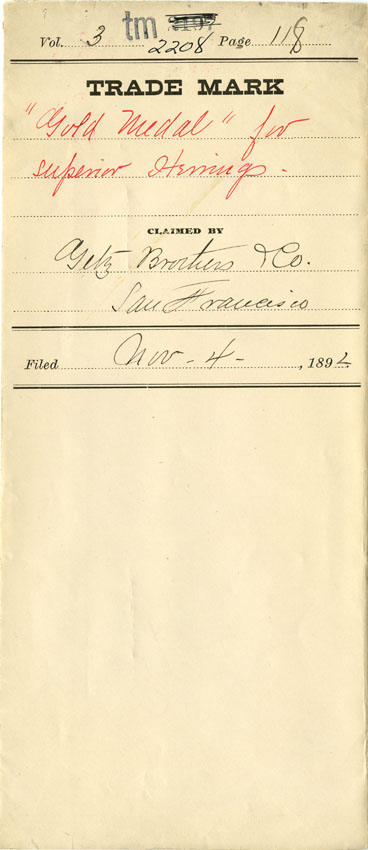 Vol. 3 tm 2208 Page 118
TRADE MARK
"Gold Medal" for
superior Herrings.
CLAIMED BY
Getz Brothers & Co.
San Francisco
Filed Nov - 4 - , 1892.